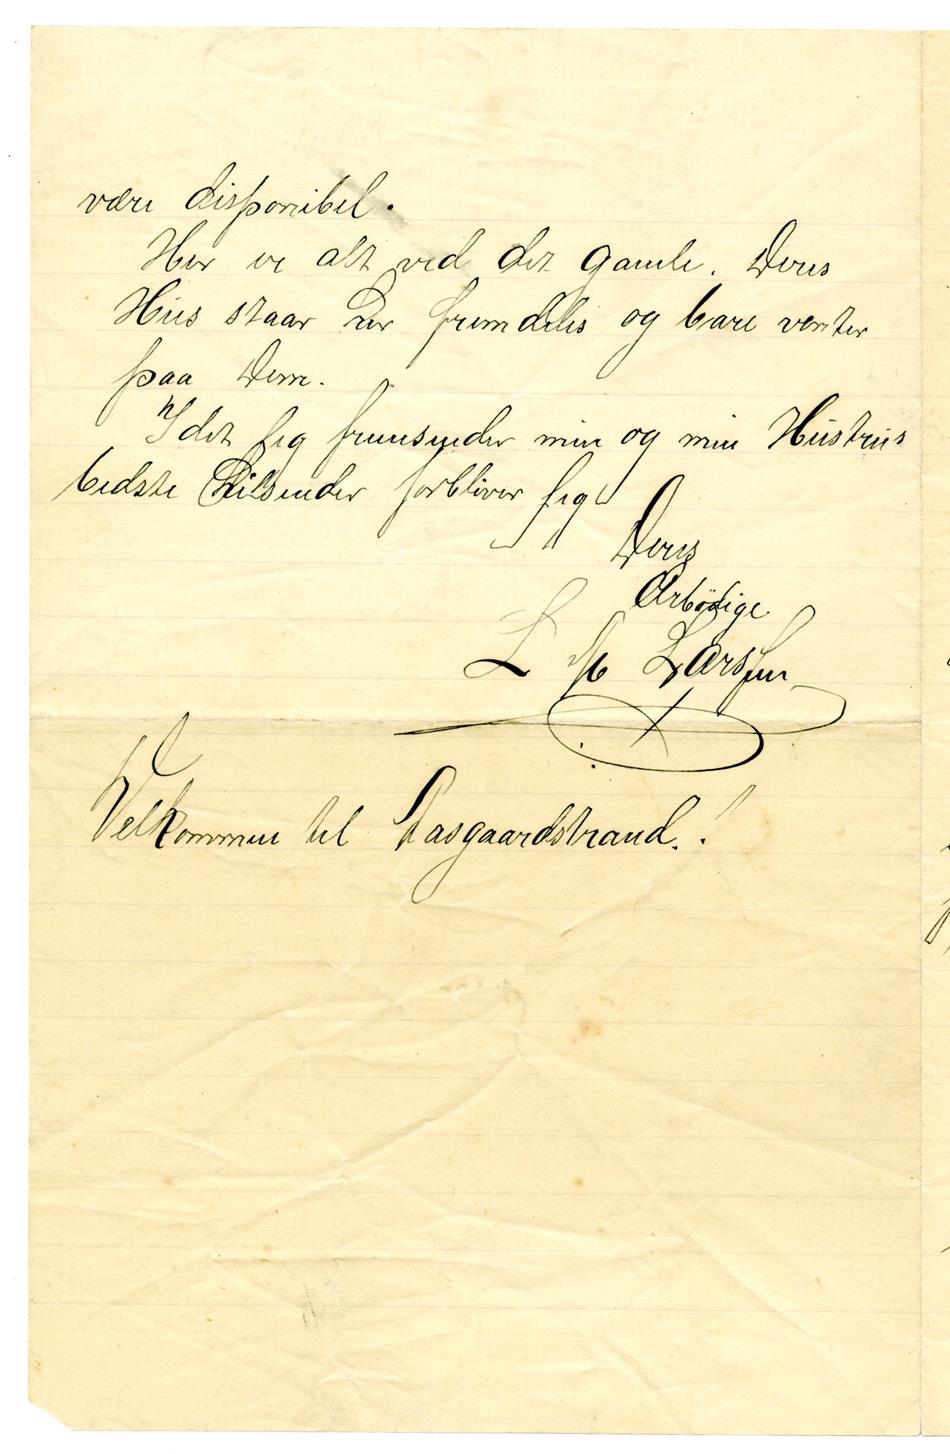 være disponibel.
Her er alt ved det gamle. Deres
Hus staar her fremdeles og bare venter
paa Dem.
Idet jeg fremsender min og min Hustrus
bedste Hilsender forbliver jeg
Deres
Ærbødige
L M Larssen
Velkommen til Aasgaardstrand.!